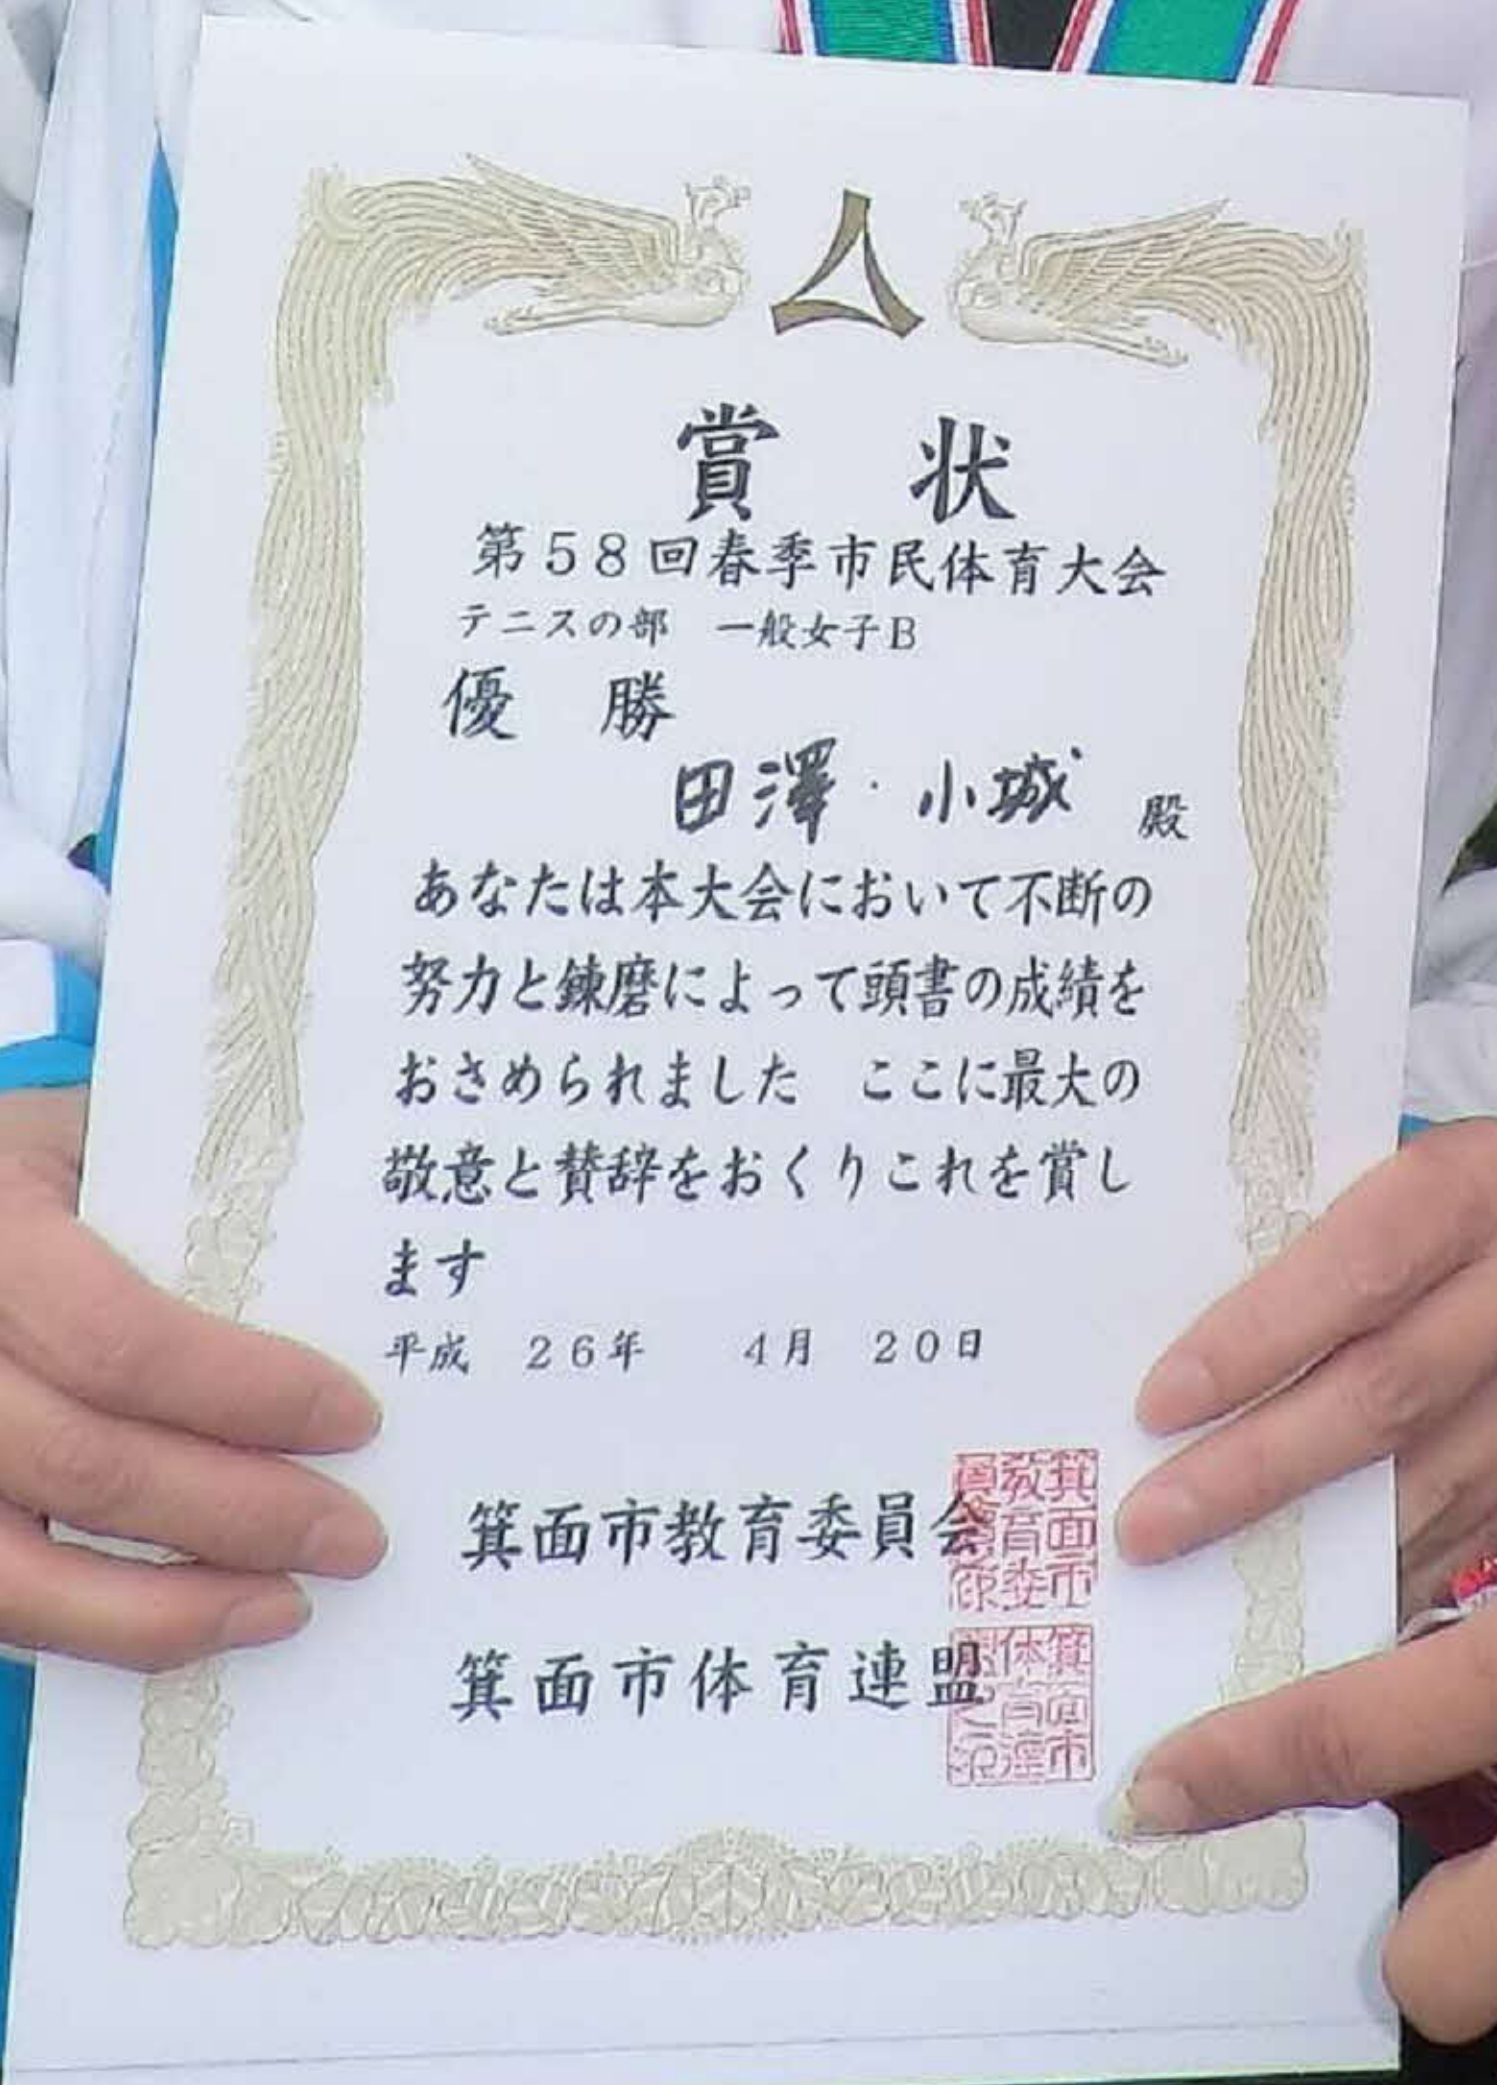 賞 状
第58回春季市民体育大会
テニスの部 一般女子B
優 勝
田澤・小城 殿
あなたは本大会において不断の
努力と錬磨によって頭書の成績を
おさめられました ここに最大の
敬意と賛辞をおくりこれを賞し
ます
平成 26年 4月 20日
箕面市教育委員会
箕面市体育連盟